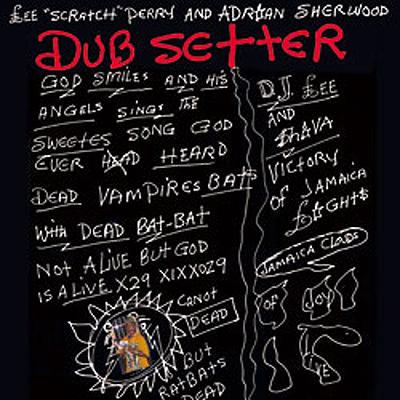 £EE "SCRATCH" PERRY AND ADRIAN SHERWOOD
DUB SETTER
GOD SMILES AND HIS
ANGELS SINGS THE
SWEETES SONG GOD
EVER HEARD
DEAD VAMPIRES BATT
WITH DEAD BAT-BAT
NOT ALIVE BUT GOD
IS ALIVE X29 XIXX029
CANOT
DEAD
BUT
RATBATS
DEAD
D.J. £EE
AND
VICTORY
OF JAMAICA
£IGHT$
JAMAICA CLOUDS
OF JOY